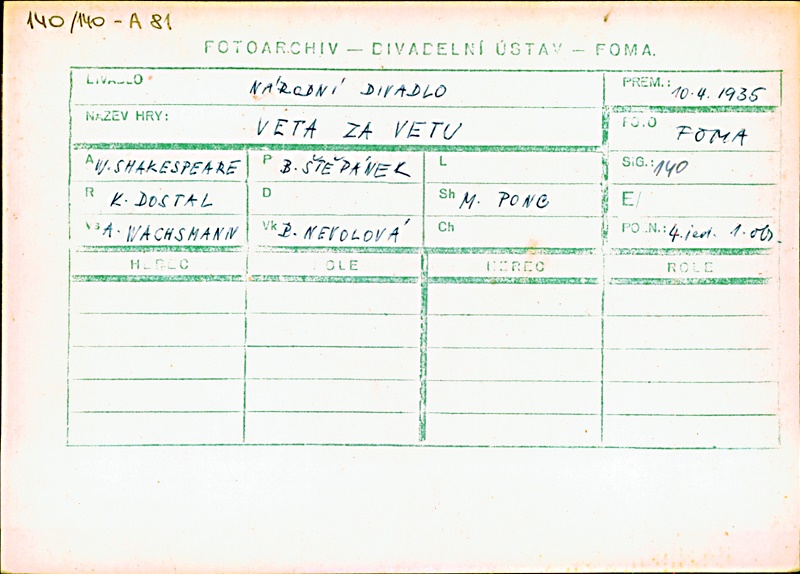 140/140 - A 81
FOTOARCHIV — DIVADELNÍ ÚSTAV — FOMA.
DIVADLO NÁRODNÍ DIVADLO PREM.: 10.4.1935
NÁZEV HRY: VETA ZA VETU FOTO FOMA
A W. SHAKESPEARE P B. ŠTĚPÁNEK L SIG.: 140
R K. DOSTAL D Sh M. PONC E/
Vs A. WACHSMANN Vk B. NEVOLOVÁ Ch POZN.: 4. jed. 1. obr.
HEREC ROLE HEREC ROLE